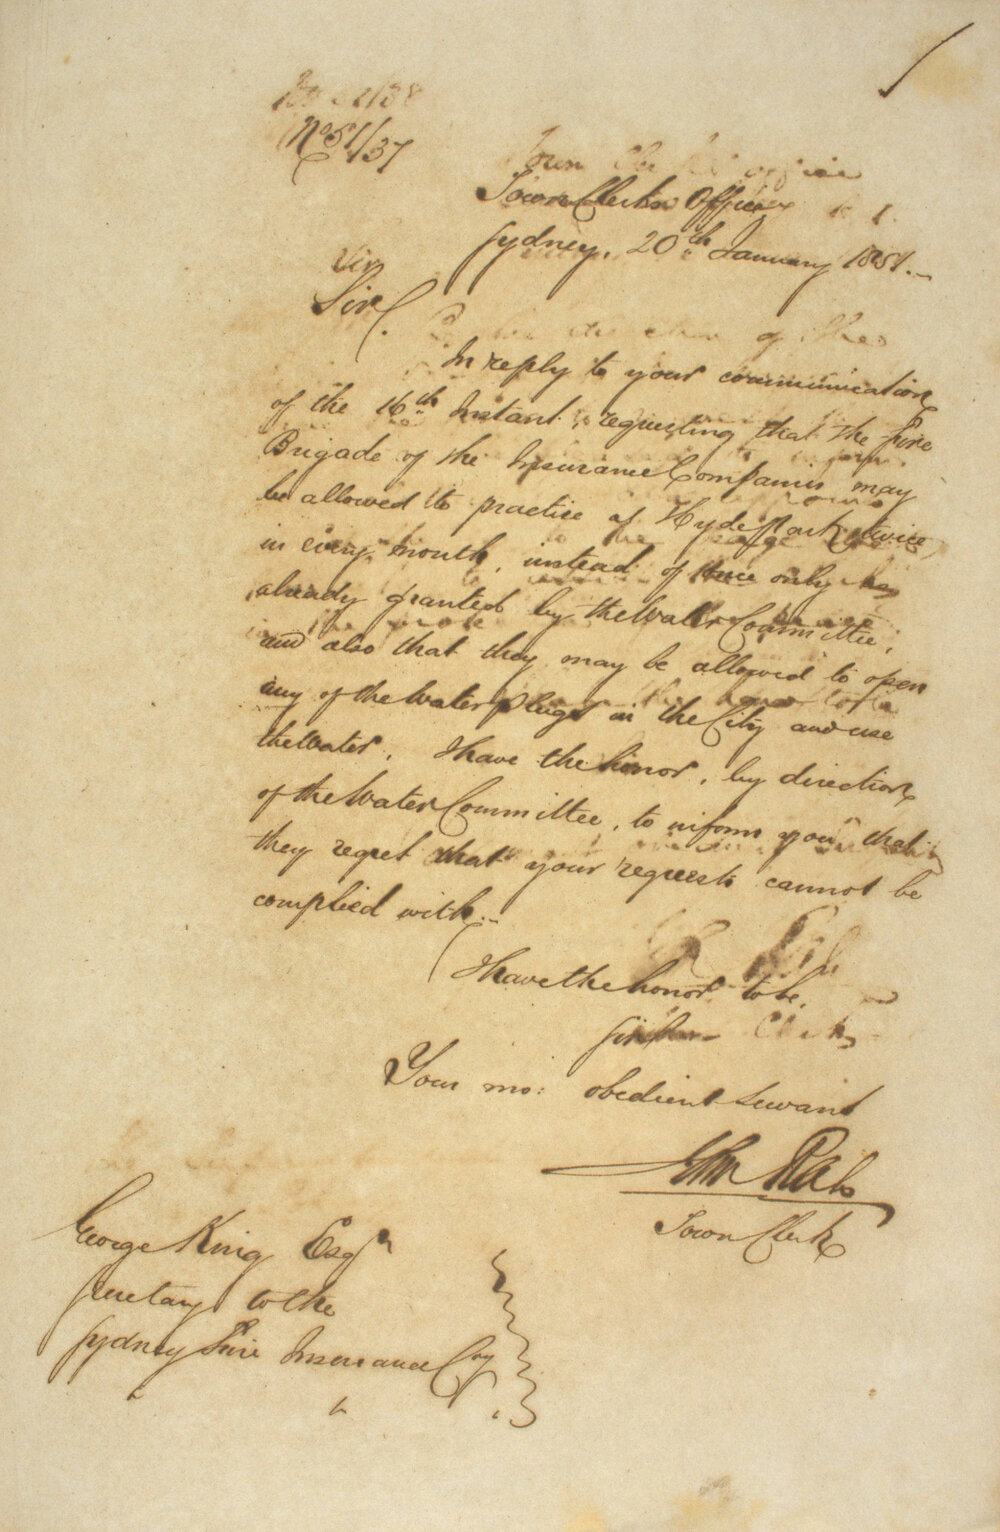 No 51/37
Town Clerk's Office
Sydney, 20th January 1851.
Sir,
In reply to your communication
of the 16th Instant, requesting that the Fire
Brigade of the Insurance Companies may
be allowed to practice at Hyde Park twice
in every month, instead of once only as
already granted by the Water Committee,
and also that they may be allowed to open
any of the Water plugs in the City and use
the Water. I have the honor, by direction
of the Water Committee, to inform you that
they regret that your requests cannot be
complied with.
I have the honor to be,
Sir
Your mo: obedient servant
John Rae
Town Clerk
George King Esqr
Secretary to the
Sydney Fire Insurance Coy